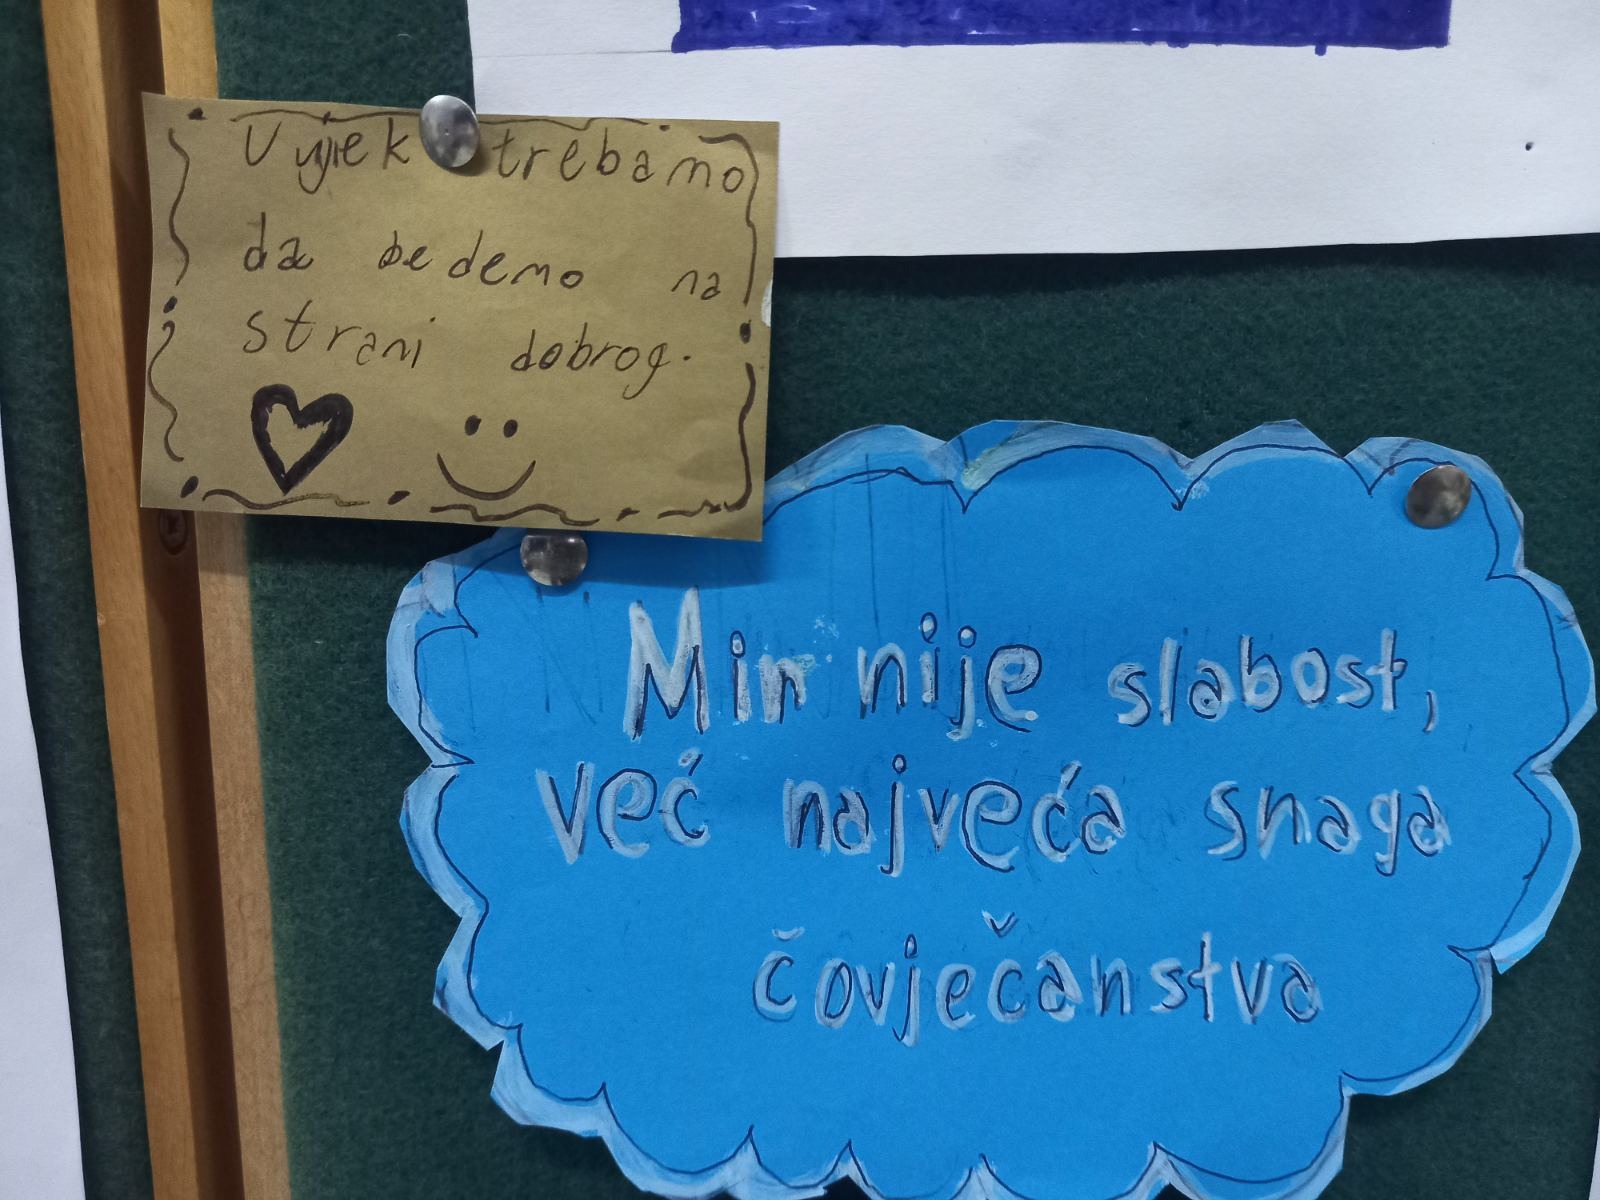 Uvjek trebamo
da bedemo na
strani dobrog.
Mir nije slabost,
već najveća snaga
čovječanstva